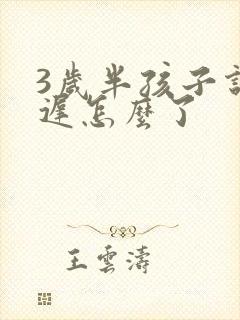 3歲半孩子
遲怎麼了
王雲濤